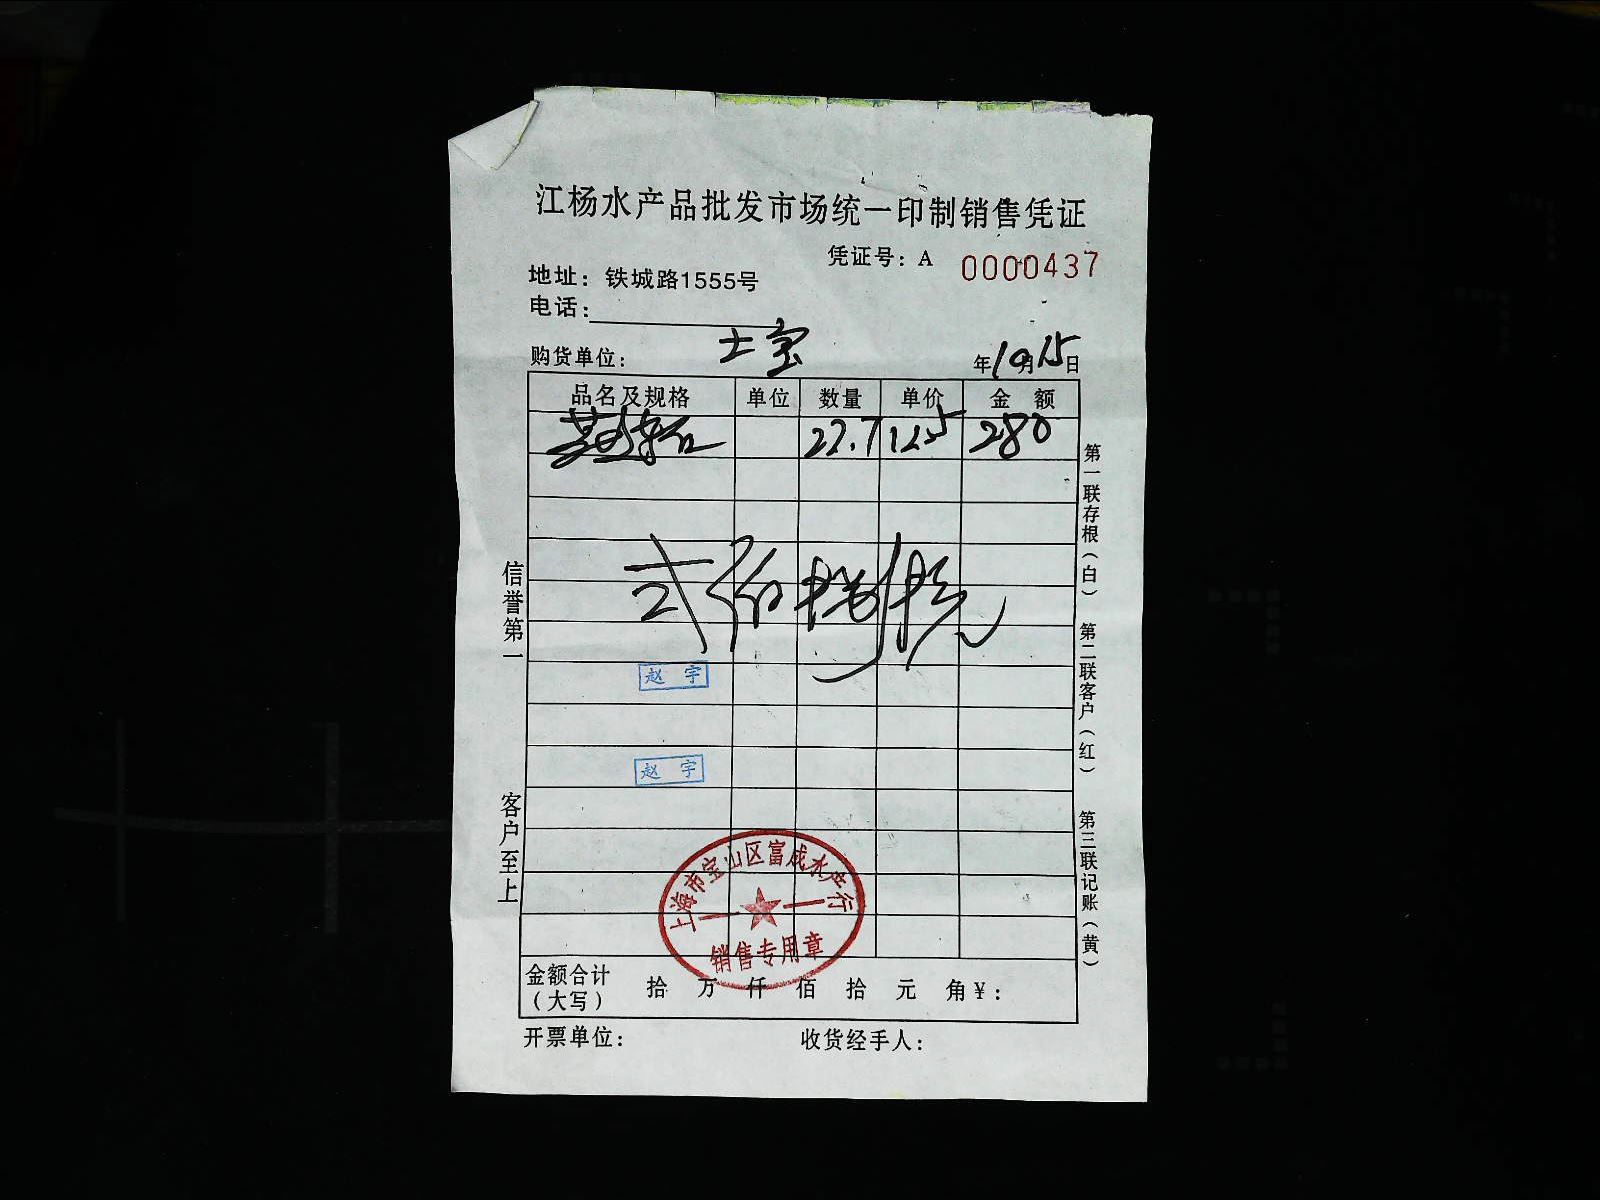 江杨水产品批发市场统一印制销售凭证
凭证号：A 0000437
地址：铁城路1555号
电话：
购货单位： 士宝 年10月15日
品名及规格 单位 数量 单价 金额
22.7 12.5 280
赵宇
赵宇
上海市宝山区富成水产行
销售专用章
金额合计（大写） 拾 万 仟 佰 拾 元 角 ¥：
开票单位： 收货经手人：
信誉第一 客户至上
第一联存根（白） 第二联客户（红） 第三联记账（黄）